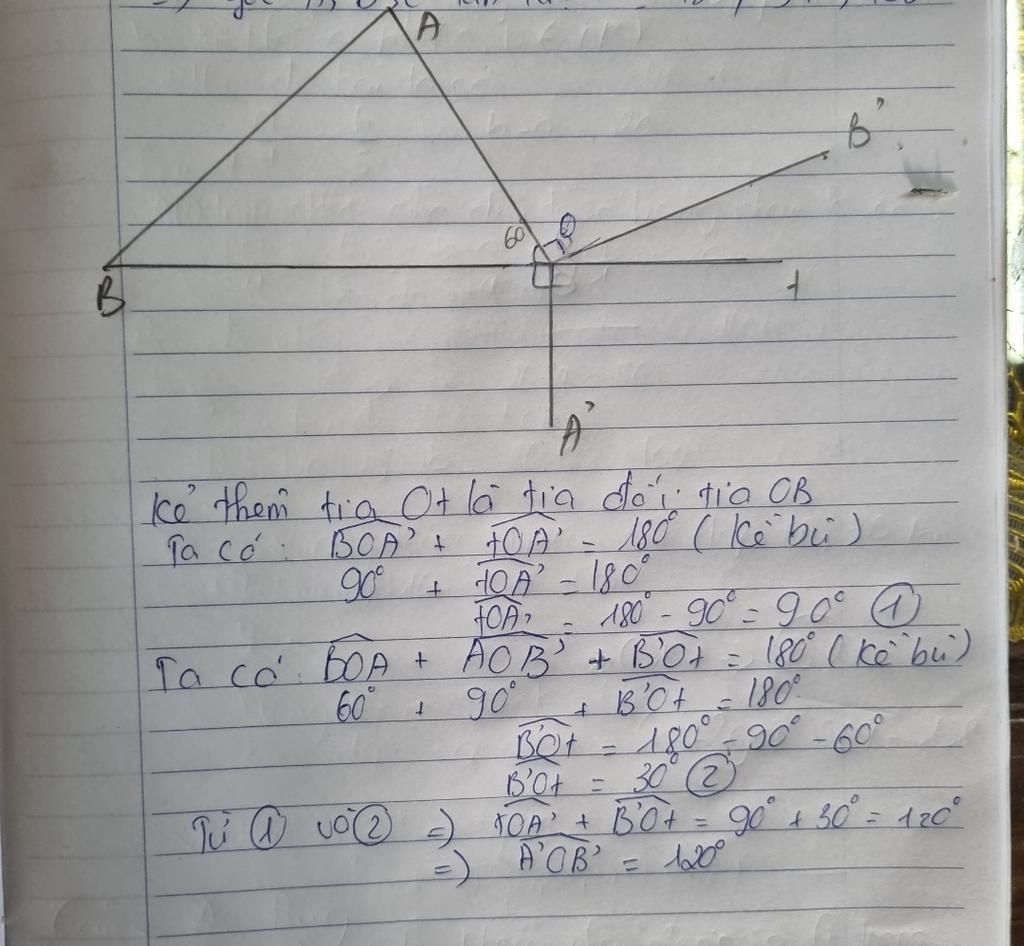 A
B'
60
O
B
t
A'
Kẻ thêm tia Ot là tia đối tia OB
Ta có: BOA' + tOA' = 180° (Kề bù)
90° + tOA' = 180°
tOA' = 180° - 90° = 90° ①
Ta có: BOA + AOB' + B'Ot = 180° (Kề bù)
60° + 90° + B'Ot = 180°
B'Ot = 180° - 90° - 60°
B'Ot = 30° ②
Từ ① và ② => tOA' + B'Ot = 90° + 30° = 120°
=> A'OB' = 120°